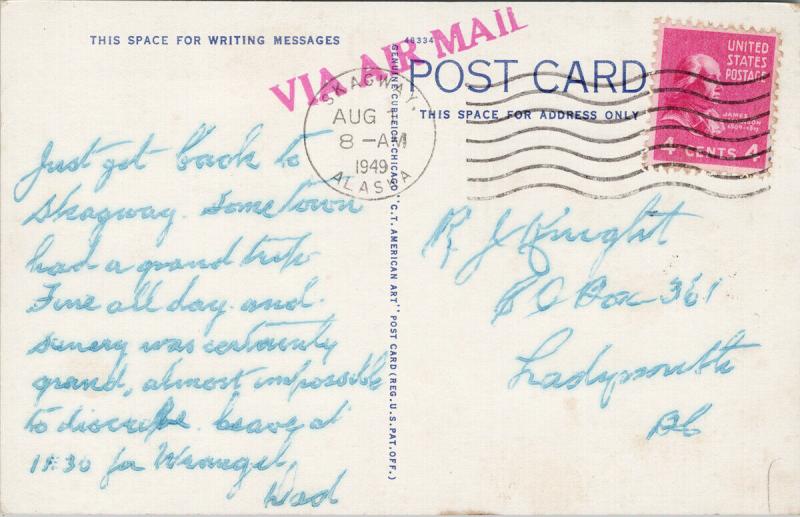 THIS SPACE FOR WRITING MESSAGES
VIA AIR MAIL
SKAGWAY,
AUG
8-AM
1949
ALASKA
Just got back to
Skagway. Some Town
had a grand trip
Fine all day and
senery was certainly
grand, almost impossible
to discribe. leave at
11:30 for Wrangel
Dad
48334
GENUINE CURTEICH-CHICAGO "C.T. AMERICAN ART" POST CARD (REG. U.S. PAT. OFF.)
POST CARD
THIS SPACE FOR ADDRESS ONLY
UNITED
STATES
POSTAGE
JAMES
MADISON
4 CENTS 4
R J Knight
P O Box 361
Ladysmith
BC